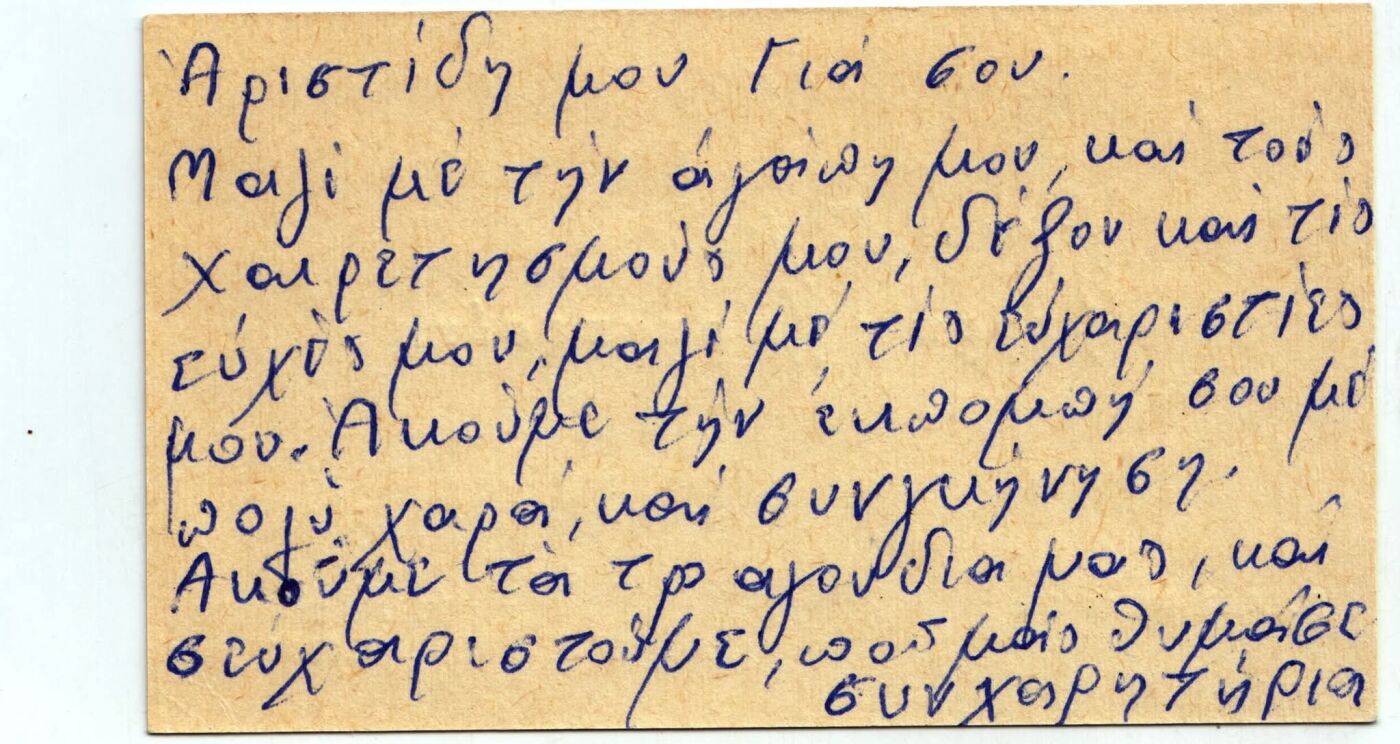 Ἀριστίδη μου Γιά σου.
Μαζί μέ τήν ἀγάπη μου, καί τούς
χαιρετησμούς μου, δέξου καί τίς
εὐχές μου, μαζί μέ τίς εὐχαριστίες
μου. Ἀκοῦμε τήν ἐκπομπή σου μέ
πολύ χαρά, καί συνγκήνηση.
Ἀκοῦμε τά τραγούδια μας, καί
σεὐχαριστοῦμε, ποῦ μᾶς θυμᾶσε
συνχαρητήρια